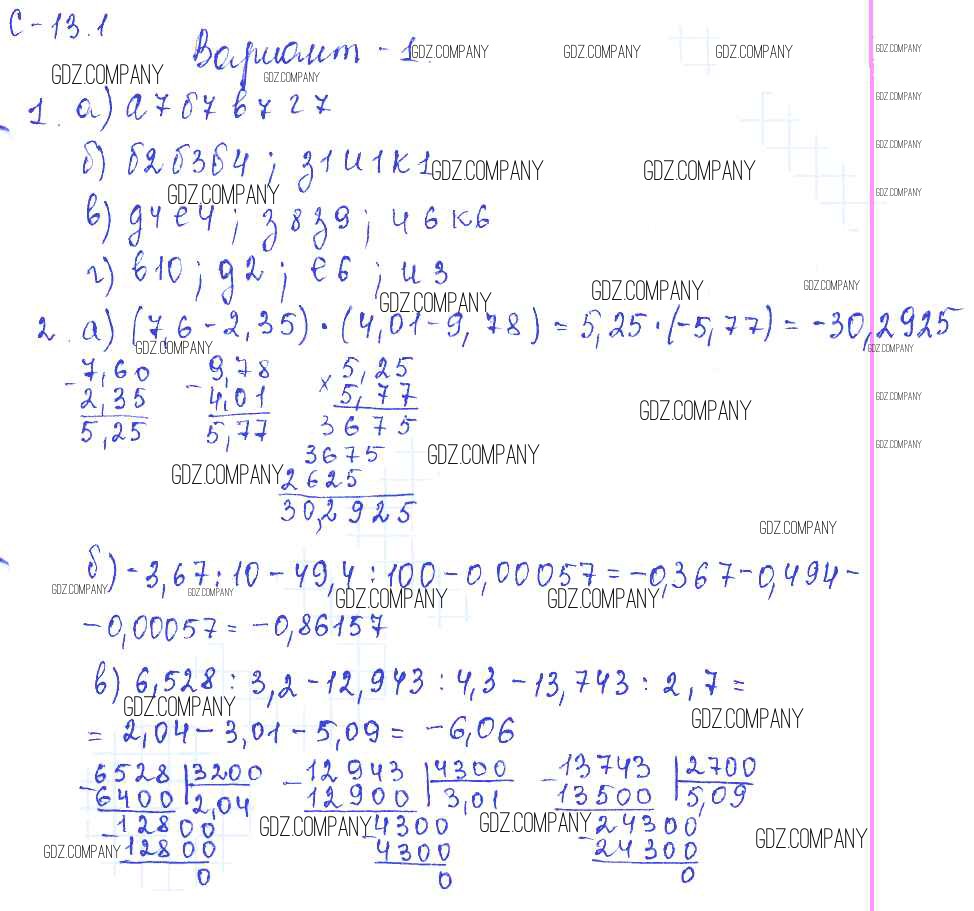 С-13.1
Вариант - 1.
GDZ.COMPANY GDZ.COMPANY GDZ.COMPANY GDZ.COMPANY
GDZ.COMPANY GDZ.COMPANY
1. а) а7 б7 в7 г7
GDZ.COMPANY
б) б2 б3 б4; з1 и1 к1
GDZ.COMPANY GDZ.COMPANY GDZ.COMPANY
GDZ.COMPANY GDZ.COMPANY
в) д4 е4; з8 з9; и6 к6
г) в10; д2; е6; и3
GDZ.COMPANY GDZ.COMPANY GDZ.COMPANY
2. а) (7,6 - 2,35) · (4,01 - 9,78) = 5,25 · (-5,77) = -30,2925
GDZ.COMPANY GDZ.COMPANY
- 7,60 - 9,78 × 5,25
2,35 4,01 5,77
5,25 5,77 3675
GDZ.COMPANY GDZ.COMPANY
3675
GDZ.COMPANY GDZ.COMPANY GDZ.COMPANY
2625
30,2925
GDZ.COMPANY
б) -3,67 : 10 - 49,4 : 100 - 0,00057 = -0,367 - 0,494 -
GDZ.COMPANY GDZ.COMPANY GDZ.COMPANY GDZ.COMPANY
-0,00057 = -0,86157
в) 6,528 : 3,2 - 12,943 : 4,3 - 13,743 : 2,7 =
GDZ.COMPANY GDZ.COMPANY
= 2,04 - 3,01 - 5,09 = -6,06
- 6528 3200 - 12943 4300 - 13743 2700
6400 2,04 12900 3,01 13500 5,09
- 12800 - 4300 - 24300
GDZ.COMPANY GDZ.COMPANY GDZ.COMPANY
12800 4300 24300
GDZ.COMPANY
0 0 0